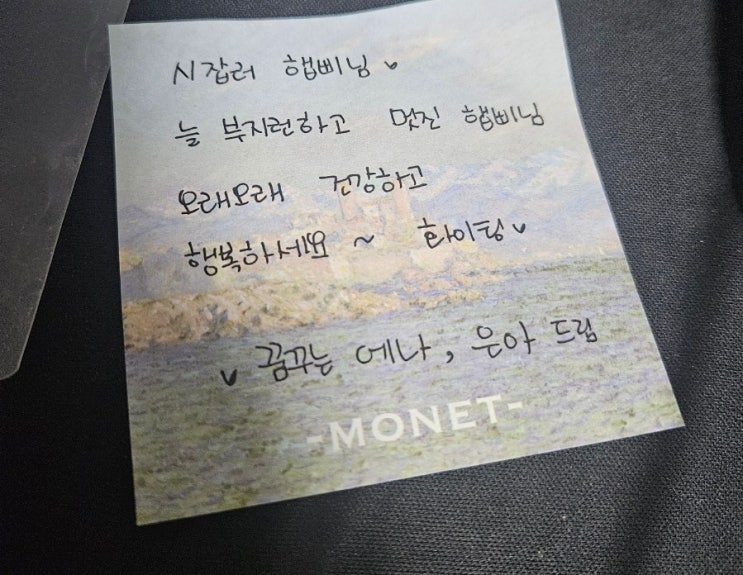 시잡러 햅삐님♥
늘 부지런하고 멋진 햅삐님
오래오래 건강하고
행복하세요 ~ 화이팅♥
♥ 꿈꾸는 에나, 은아 드림
-MONET-